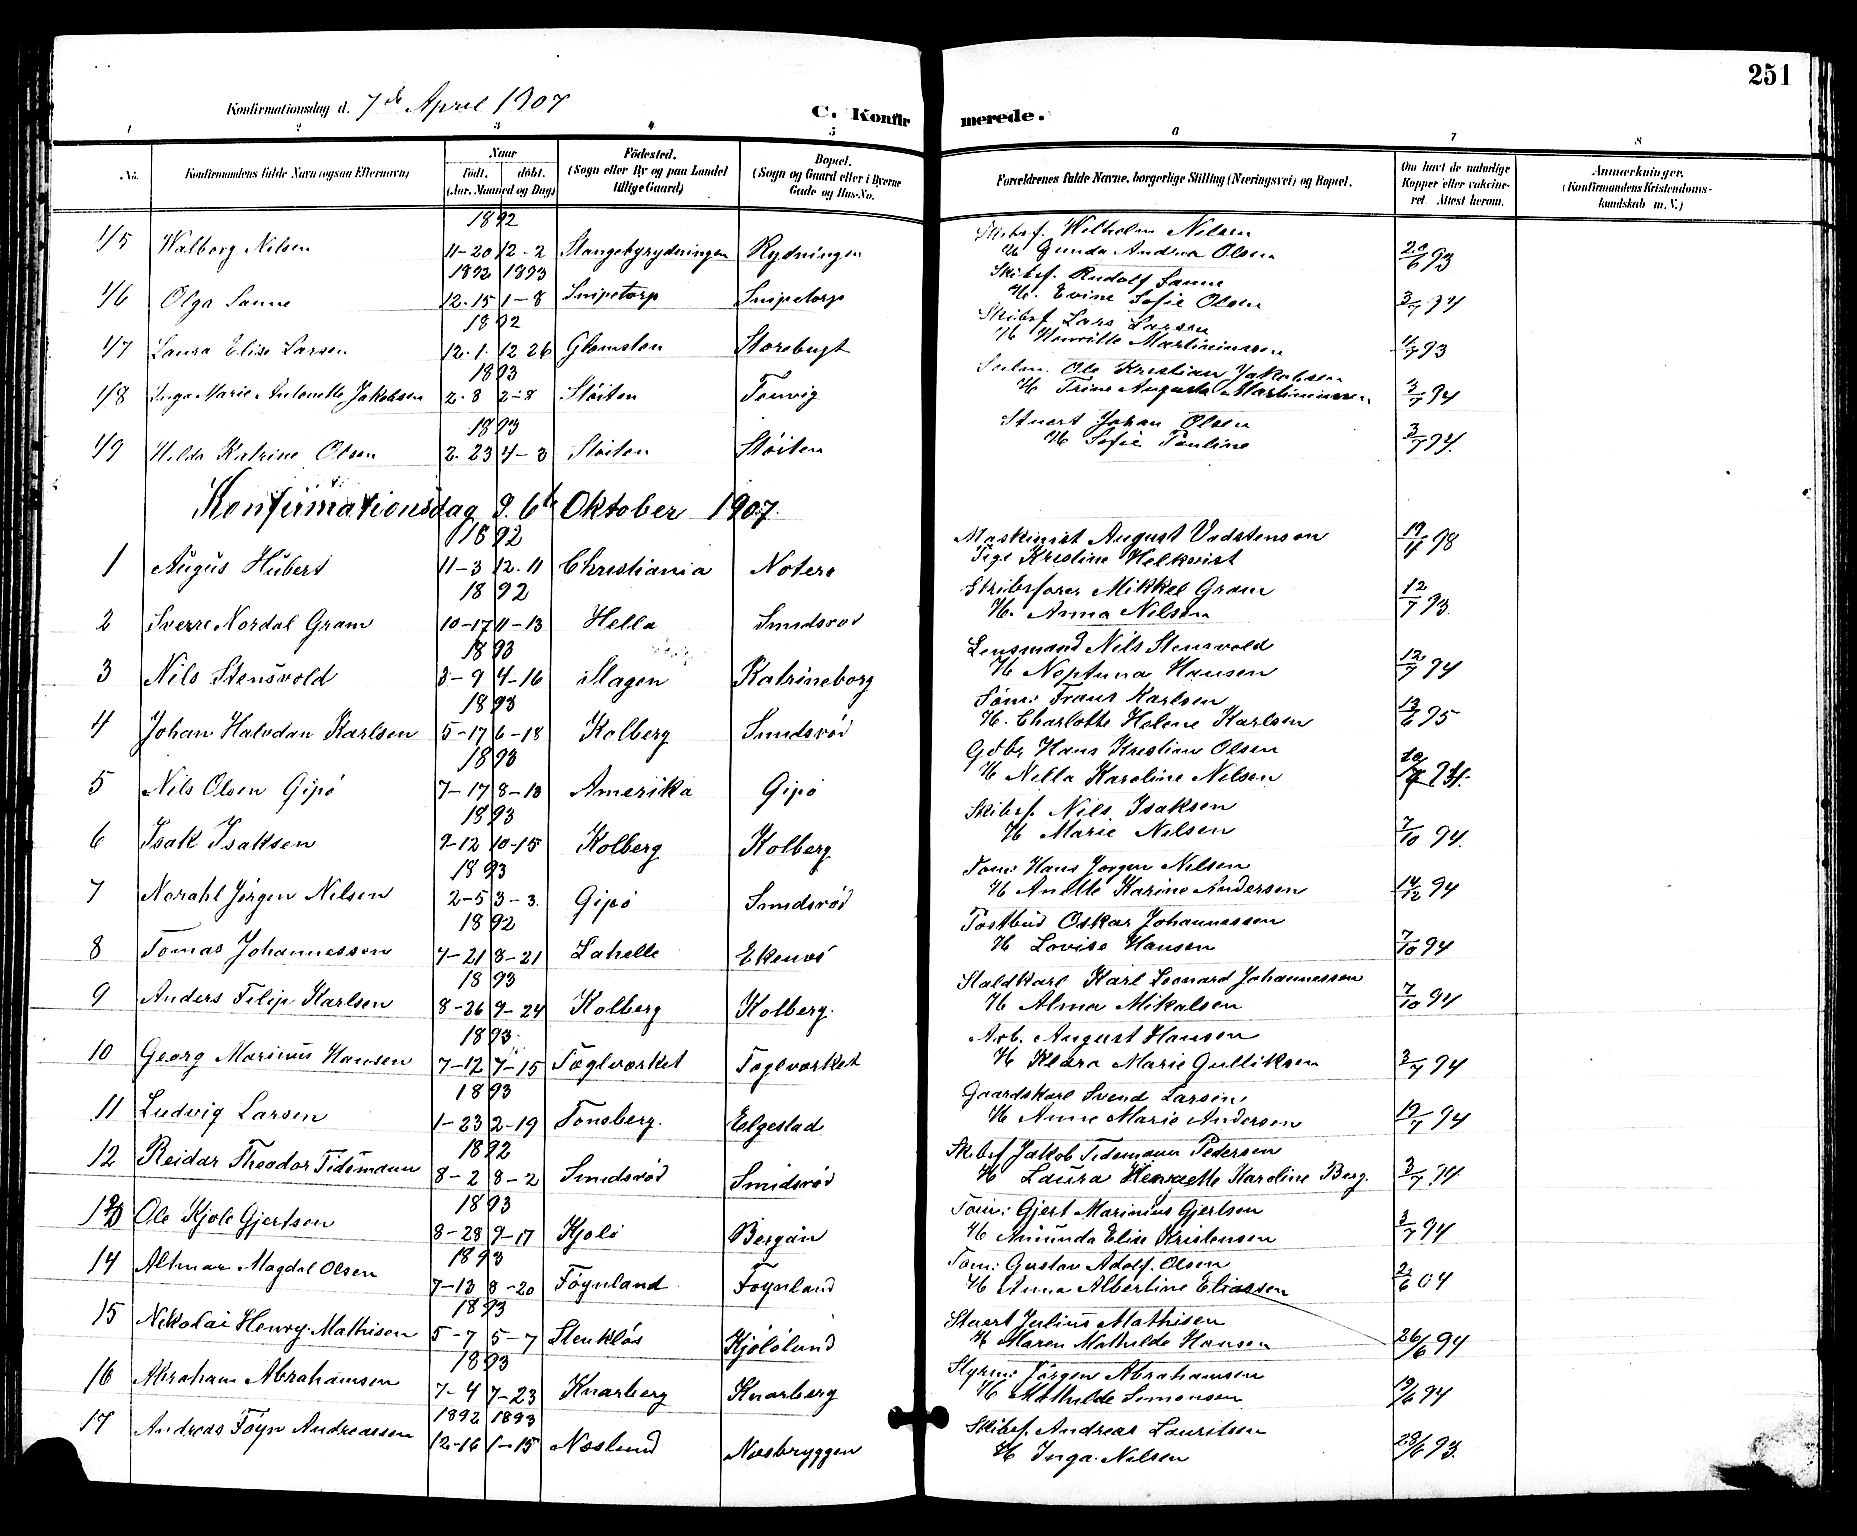 251
Konfirmationsdag d. 7de April 1907
C. Konfir merede.
1 2 3 4 5 6 7 8
No. Konfirmandens fulde Navn (ogsaa Efternavn) Naar Födt. döbt. (Aar, Maaned og Dag) Födested. (Sogn eller By og paa Landet tillige Gaard) Bopæl. (Sogn og Gaard eller i Byerne Gade og Hus-No. Forældrenes fulde Navne, borgerlige Stilling (Næringsvei) og Bopæl. Om havt de naturlige Kopper eller vakcineret. Attest herom. Anmærkninger. (Konfirmandens Kristendomskundskab m. V.)
1892 Skibsf. Wilhelm Nilsen
45 Valborg Nilsen 11-20 12-2 Slangebyrydningen Rydningen H. Gunda Andrea Olsen 20/6 93
1892 1893 Skibsf. Rudolf Sanne
46 Olga Sanne 12-15 1-8 Snipetorp Snipetorp H. Evine Sofie Olsen 3/7 94
1892 Skibsf. Lars Larsen
47 Laura Elise Larsen 12-1. 12 26 Glomsten Storebugt H Martiniussen 4/7 93
1893 Ole Kristian Jakobsen
48 Inga Marie Antonette Jakobsen 2-8 2-8 Støiten Tenvig H Trine Augusta Martiniussen 3/7 94
1893 Stuert Johan Olsen
49 Hilda Katrine Olsen 2-23 4-3 Støiten Støiten H Sofie Pauline 3/7 94.
Konfirmationsdag d. 6te Oktober 1907.
1892 Maskinist August Vadstenson
1 Augus Hubert 11-3 12-11 Christiania Notero Pige Kristine Helkvist 19/4 98
1892 Skibsforer Mikkel Gram
2 Sverre Nordal Gram 10-17 11-13 Hella Smidsrød H. Anna Nilsen 12/7 93.
1893 Lensmand Nils Stensvold
3 Nils Stensvold 3-9 4-16 Slagen Katrineborg H Neptuna Hansen 12/7 94
1893 Tøm: Frans Karlsen
4 Johan Halvdan Karlsen 5-17 6-18 Kolberg Smidsrød H. Charlotte Helene Karlsen 13/6 95
1893 Gdbr Hans Kristian Olsen
5 Nils Olsen Gipø 7-17 8-13 Amerika Gipø H Nilla Karoline Nilsen
1893 Skibsf. Nils Isaksen
6 Isak Isaksen 9-12 10-15 Kolberg Kolberg H Marie Nilsen 7/10 94.
1893 Tøm: Hans Jørgen Nilsen
7 Norahl Jørgen Nilsen 2-5 3-3. Gipø Smidsrød H Anette Karine Andersen 14/12 94
1892 Postbud Oskar Johannessen
8 Tomas Johannessen 4-21 8-21 Lahelle Ekenes H Lovise Hansen 7/10 94
1893 Staldkarl Karl Leonard Johannessen
9 Anders Filip Karlsen 8-26 9-24 Kolberg Kolberg. H Alma Mikalsen 7/10 94
1893 Arb. August Hansen
10 Georg Marinius Hansen 7-12 7-15 Teglværket Teglværket H Klara Marie Gulliksen 3/7 94
1893 Gaardskarl Svend Larsen
11 Ludvig Larsen 1-23 2-19 Tønsberg. Elgestad H Anne Marie Andersen 19/7 94
1892 Skibsf Jakob Tidemann Pedersen
12 Reidar Theodor Tidemann 8-2 8-2 Smidsrød Smidsrød H Laura Henriette Karoline Berg. 3/7 94
1893 Tøm: Gjert Marinius Gjertsen
13 Ole Kjole Gjertsen 8-28 9-17 Kjole Bergan H Amunda Elise Kristensen 3/7 94
1893 Tøm: Gustav Adolf Olsen
14 Altmar Magdal Olsen 7-13 8-20 Føynland Føynland H Anna Albertine Eliassen 2/6 04
1893 Stuert Julius Mathisen
15 Nikolai Henry Mathisen 5-7 5-7 Stenkløs Kjølølund H Maren Mathilde Hansen 26/6 94
1893 Styrm: Jørgen Abrahamsen
16 Abraham Abrahamsen 7-4 7-23 Knarberg Knarberg H Mathilde Simonsen 19/6 94
1892 1893 Skibsf. Andreas Lauritsen
17 Andreas Føyn Andreassen 12-16 1-15 Næslund Næsbryggen H Inga Nilsen 28/6 93.